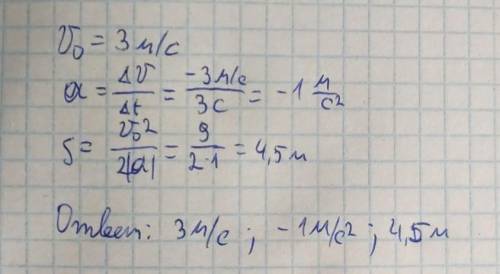 V₀ = 3 м/с
a = ΔV/Δt = -3 м/с / 3 с = -1 м/с²
S = V₀²/2|a| = 9/2·1 = 4,5 м
Ответ: 3 м/с ; -1 м/с² ; 4,5 м